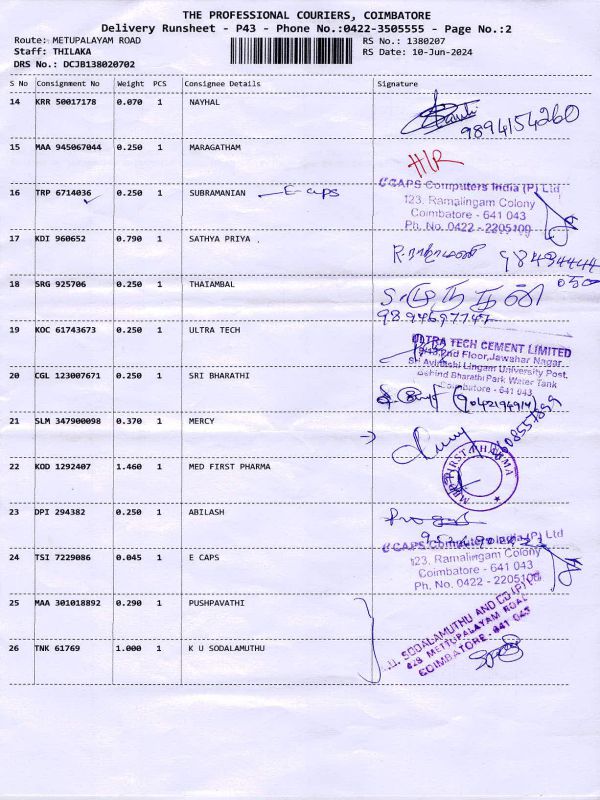 THE PROFESSIONAL COURIERS, COIMBATORE
Delivery Runsheet - P43 - Phone No.:0422-3505555 - Page No.:2
Route: METUPALAYAM ROAD RS No.: 1380207
Staff: THILAKA RS Date: 10-Jun-2024
DRS No.: DCJB138020702
S No Consignment No Weight PCS Consignee Details Signature
14 KRR 50017178 0.070 1 NAYHAL
9894154260
15 MAA 945067044 0.250 1 MARAGATHAM
H/R
16 TRP 6714036 0.250 1 SUBRAMANIAN E-caps
CAPS Computers India (P) Ltd
123, Ramalingam Colony
Coimbatore - 641 043
Ph. No. 0422 - 2205100
17 KDI 960652 0.790 1 SATHYA PRIYA .
18 SRG 925706 0.250 1 THAIAMBAL
19 KOC 61743673 0.250 1 ULTRA TECH
ULTRA TECH CEMENT LIMITED
2nd Floor, Jawahar Nagar
Sri Avinashi Lingam University Post,
Behind Bharathi Park Water Tank
Coimbatore - 641 043
20 CGL 123007671 0.250 1 SRI BHARATHI
21 SLM 347900098 0.370 1 MERCY
22 KOD 1292407 1.460 1 MED FIRST PHARMA
MED FIRST PHARMA
23 DPI 294382 0.250 1 ABILASH
24 TSI 7229086 0.045 1 E CAPS
CAPS Computers India (P) Ltd
123, Ramalingam Colony
Coimbatore - 641 043
Ph. No. 0422 - 2205100
25 MAA 301018892 0.290 1 PUSHPAVATHI
26 TNK 61769 1.000 1 K U SODALAMUTHU
SODALAMUTHU AND CO (P)
METTUPALAYAM ROAD
COIMBATORE - 641 043